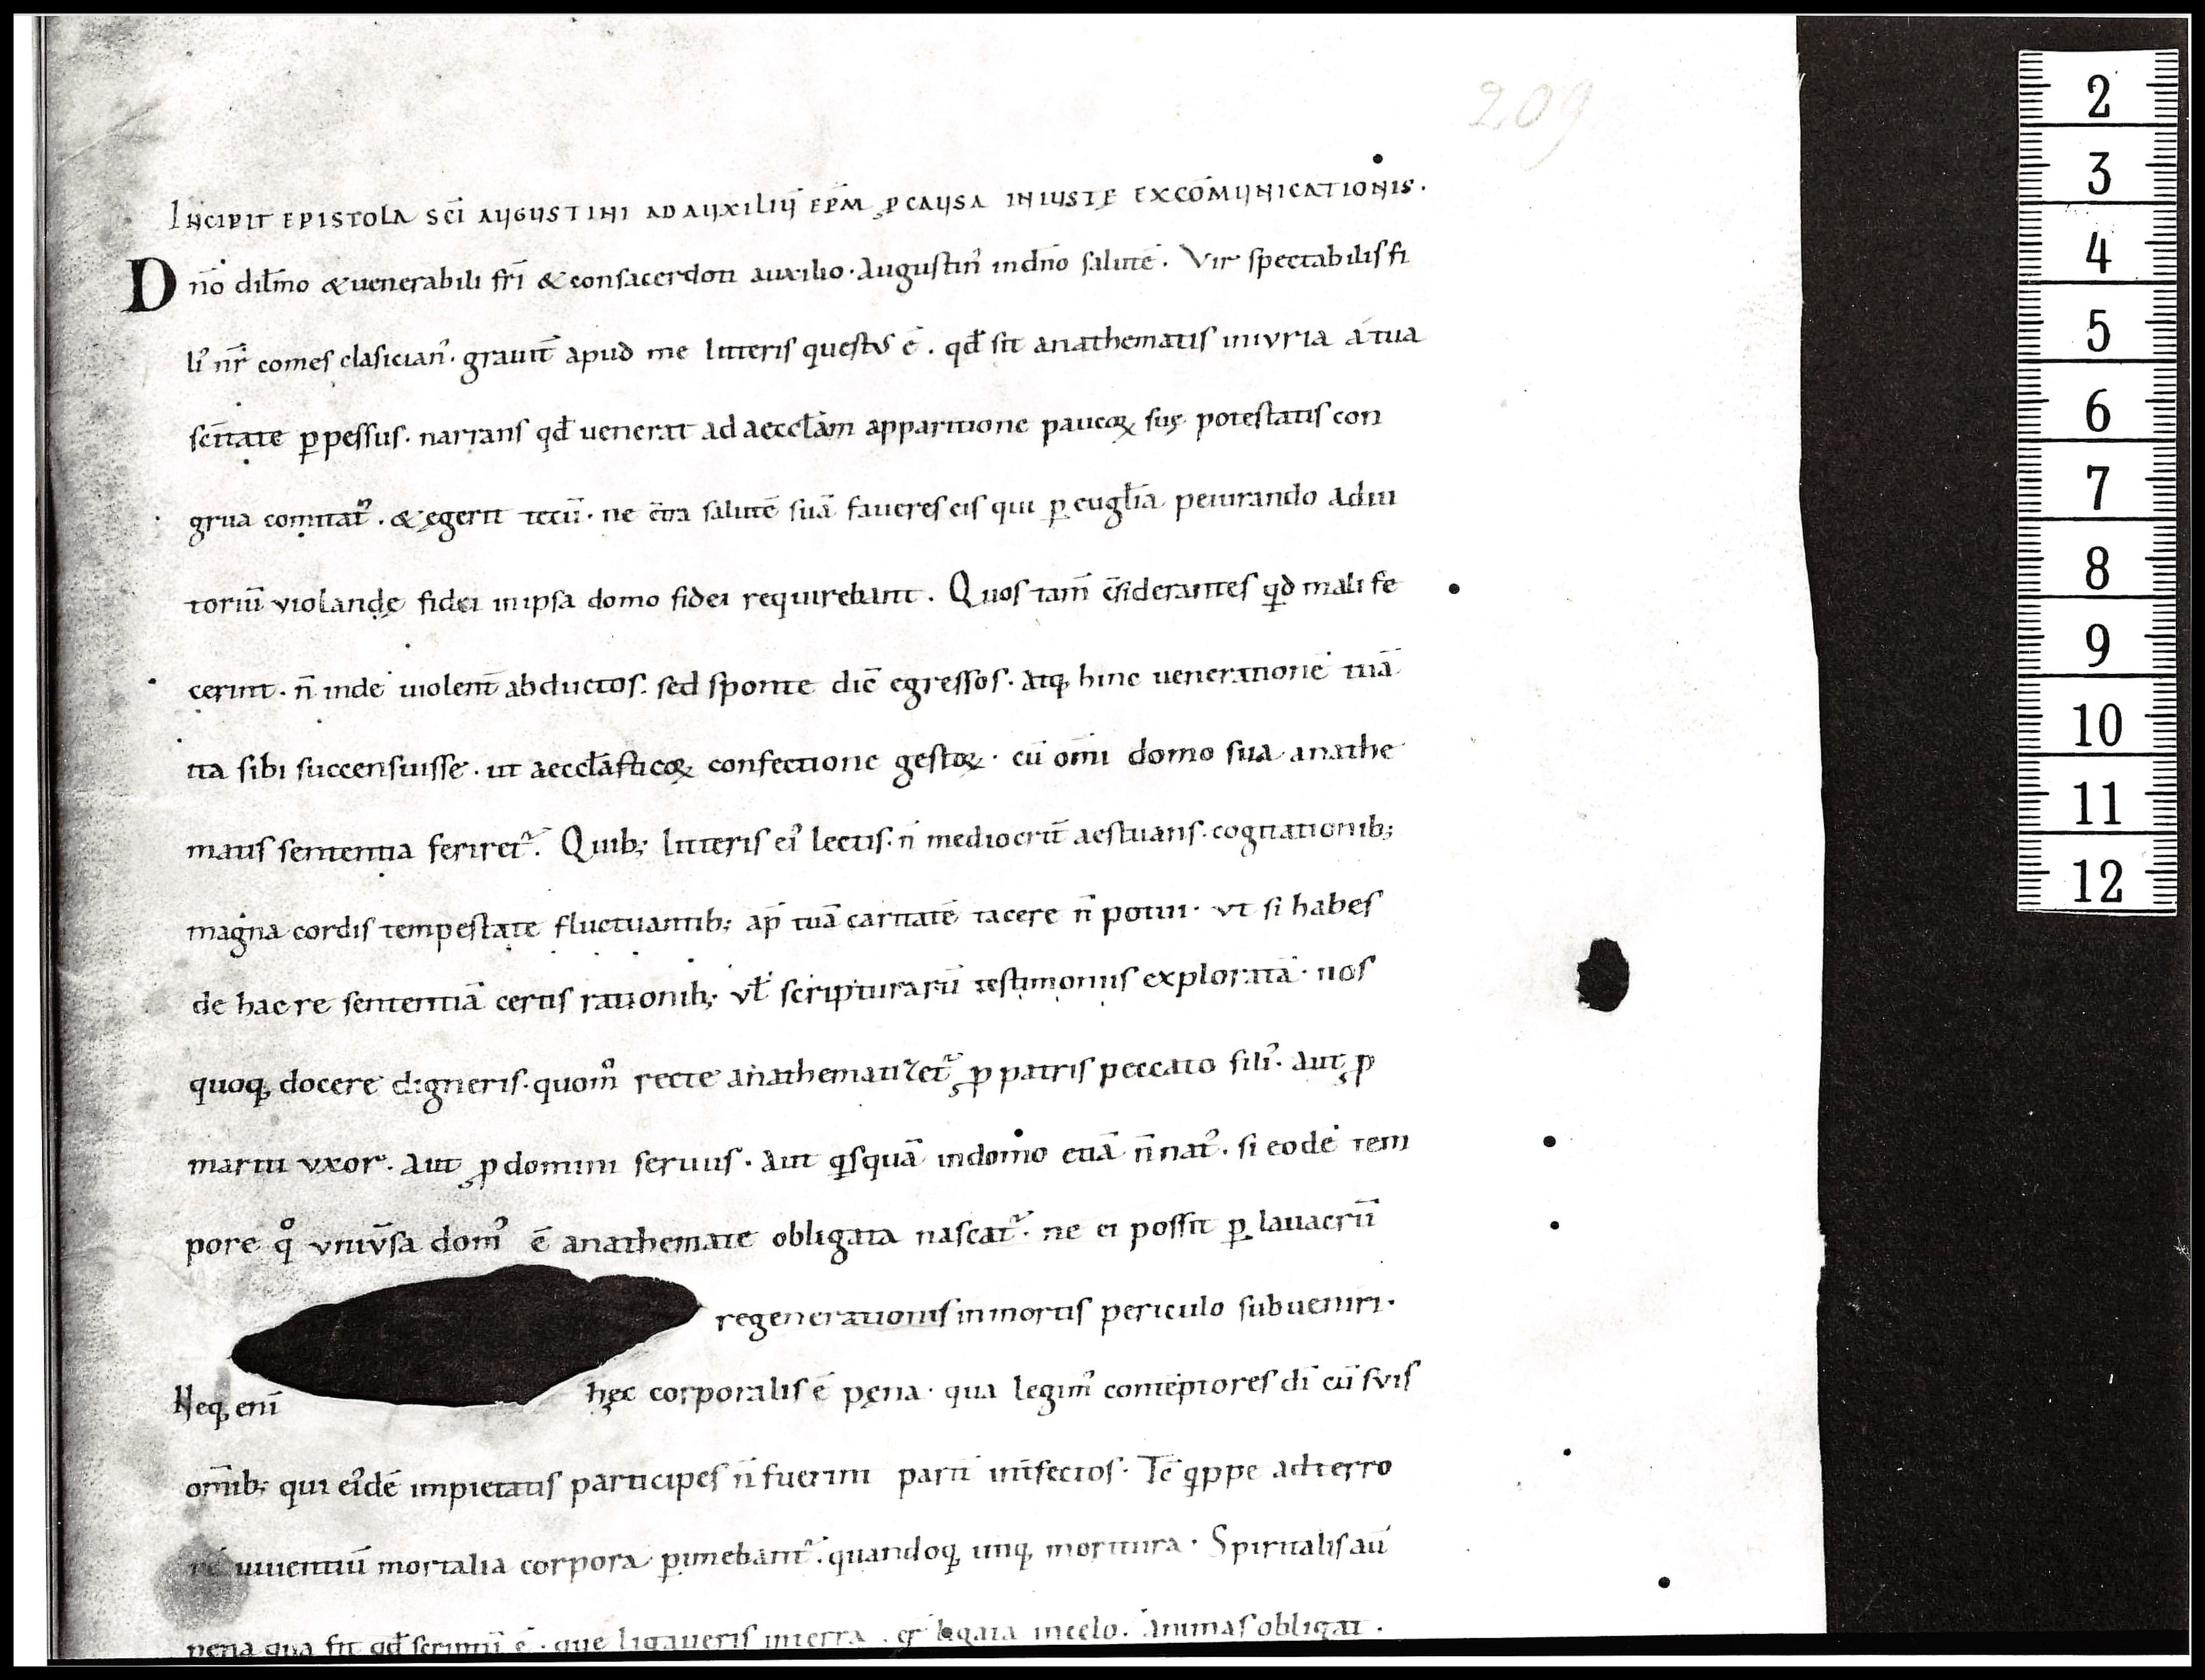 209
INCIPIT EPISTOLA SCI AUGUSTINI AD AUXILIŪ EPM ꝓ CAUSA INIUSTE EXCOMUNICATIONIS.
Dno dilmo & uenerabili fri & consacerdoti auxilio. Augustin' in dno salutē. Vir spectabilis fi
li' nr comes clasician'. grauit apud me litteris questus ē. qđ sit anathematis iniuria a tua
scitate ꝑpessus. narrans qđ uenerat ad aecclam apparitione paucoꝝ suę potestatis con
grua comitat'. & egerit tecū. ne cтra salutē suā faueres eis qui ꝑ euglia peiurando adiu
toriū violandę fidei in ipsa domo fidei requirebant. Quos tam c̄siderantes qd mali fe
cerint. n̄ inde uiolent abductos. sed sponte dic egressos. atq; hinc ueneratione tuā
ita sibi succensuisse. ut aecclasticoꝝ confectione gestoꝝ. cū omi domo sua anathe
matis sententia feriret'. Quib; litteris ei' lectis. n̄ mediocrit aestuans. cogitationib;
magna cordis tempestate fluctuantib; ap tuā caritatē tacere n̄ potui. vt si habes
de hac re sententiā certis rationib; vł scripturarū testimoniis exploratā. nos
quoq; docere digneris. quom recte anathematizet' ꝓ patris peccato fili'. aut ꝓ
mariti vxor. aut ꝓ domini seruus. aut qsquā in domo etiā n̄ nat'. si eodē tem
pore q° vniv̄sa dom' ē anathemate obligata nascat'. ne ei possit ꝑ lauacrū
regenerationis in mortis periculo subueniri.
Neq; eni hęc corporalis ē pęna. qua legim' conteptores di cū suis
omib; qui ei'dē impietatis participes n̄ fuerint parit int̄fectos. Tē qppe ad terro
rē uiuentiū mortalia corpora ꝑimebant'. quandoq; utiq; moritura. Spiritalis aū
pena qua fit qđ scriptū ē. que ligaueris in terra. er ligata in celo. Animas obligat.
2
3
4
5
6
7
8
9
10
11
12